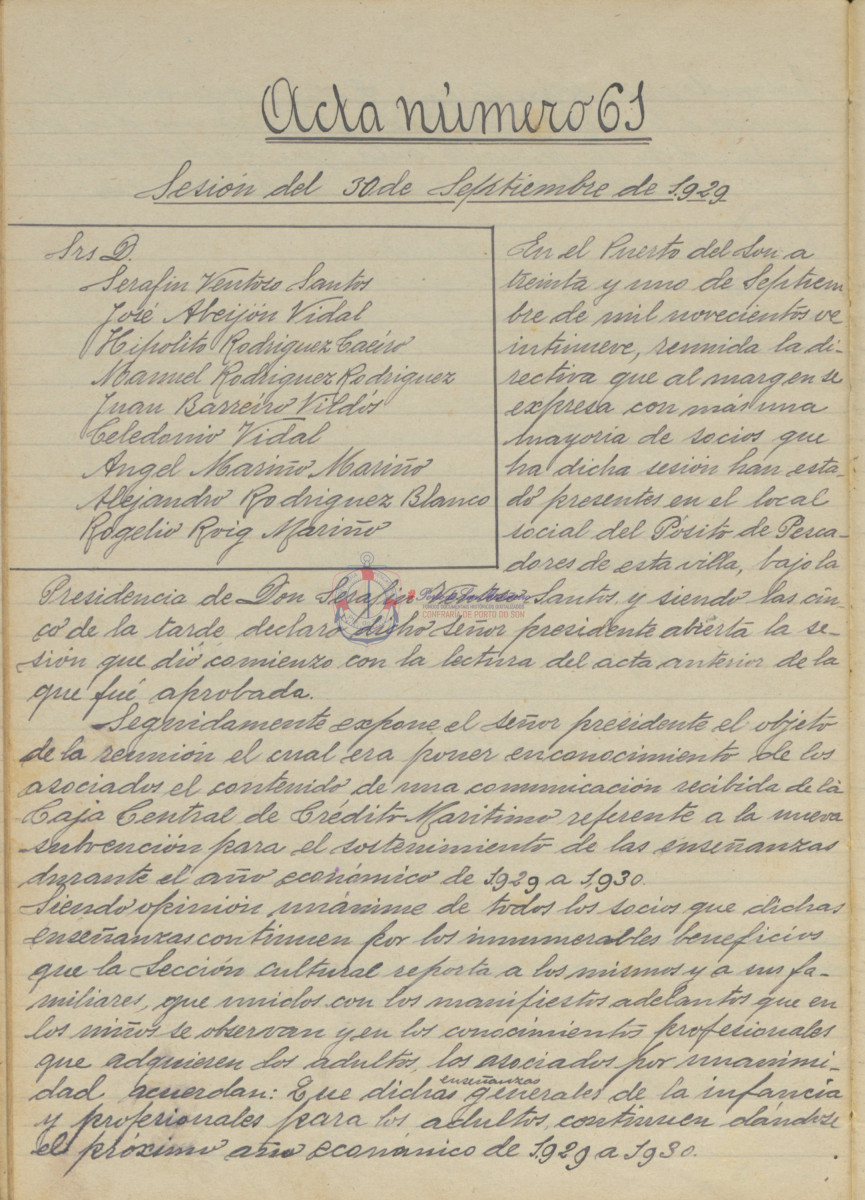 Acta número 61
Sesión del 30 de Septiembre de 1.929
Srs D.
Serafin Ventoso Santos
José Abeijón Vidal
Hipolito Rodriguez Caeiro
Manuel Rodriguez Rodriguez
Juan Barreiro Vildós
Celedonio Vidal
Angel Mariño Mariño
Alejandro Rodriguez Blanco
Rogelio Roig Mariño
En el Puerto del Son a
treinta y uno de Septiem
bre de mil novecientos ve
intinueve, reunida la di-
rectiva que al margen se
expresa con más una
mayoria de socios que
ha dicha sesión han esta-
do presentes en el local
social del Pósito de Pesca-
dores de esta villa, bajo la
Presidencia de Don Serafin Ventoso Santos y siendo las cin
co de la tarde declaró dicho señor presidente abierta la se-
sión que dió comienzo con la lectura del acta anterior de la
que fué aprobada.
Seguidamente expone el señor presidente el objeto
de la reunión el cual era poner en conocimiento de los
asociados el contenido de una comunicación recibida de la
Caja Central de Crédito Maritimo referente a la nueva
subvención para el sostenimiento de las enseñanzas
durante el año económico de 1.929 a 1.930.
Siendo opinión unánime de todos los socios que dichas
enseñanzas continuen por los innumerables beneficios
que la Sección cultural reporta a los mismos y a sus fa-
miliares, que unidos con los manifiestos adelantos que en
los niños se observan y en los conocimientos profesionales
que adquieren los adultos, los asociados por unanimi-
dad acuerdan: Que dichas enseñanzas generales de la infancia
y profesionales para los adultos continuen dándose
el próximo año económico de 1.929 a 1.930.
CONFRARIA DE PORTO DO SON